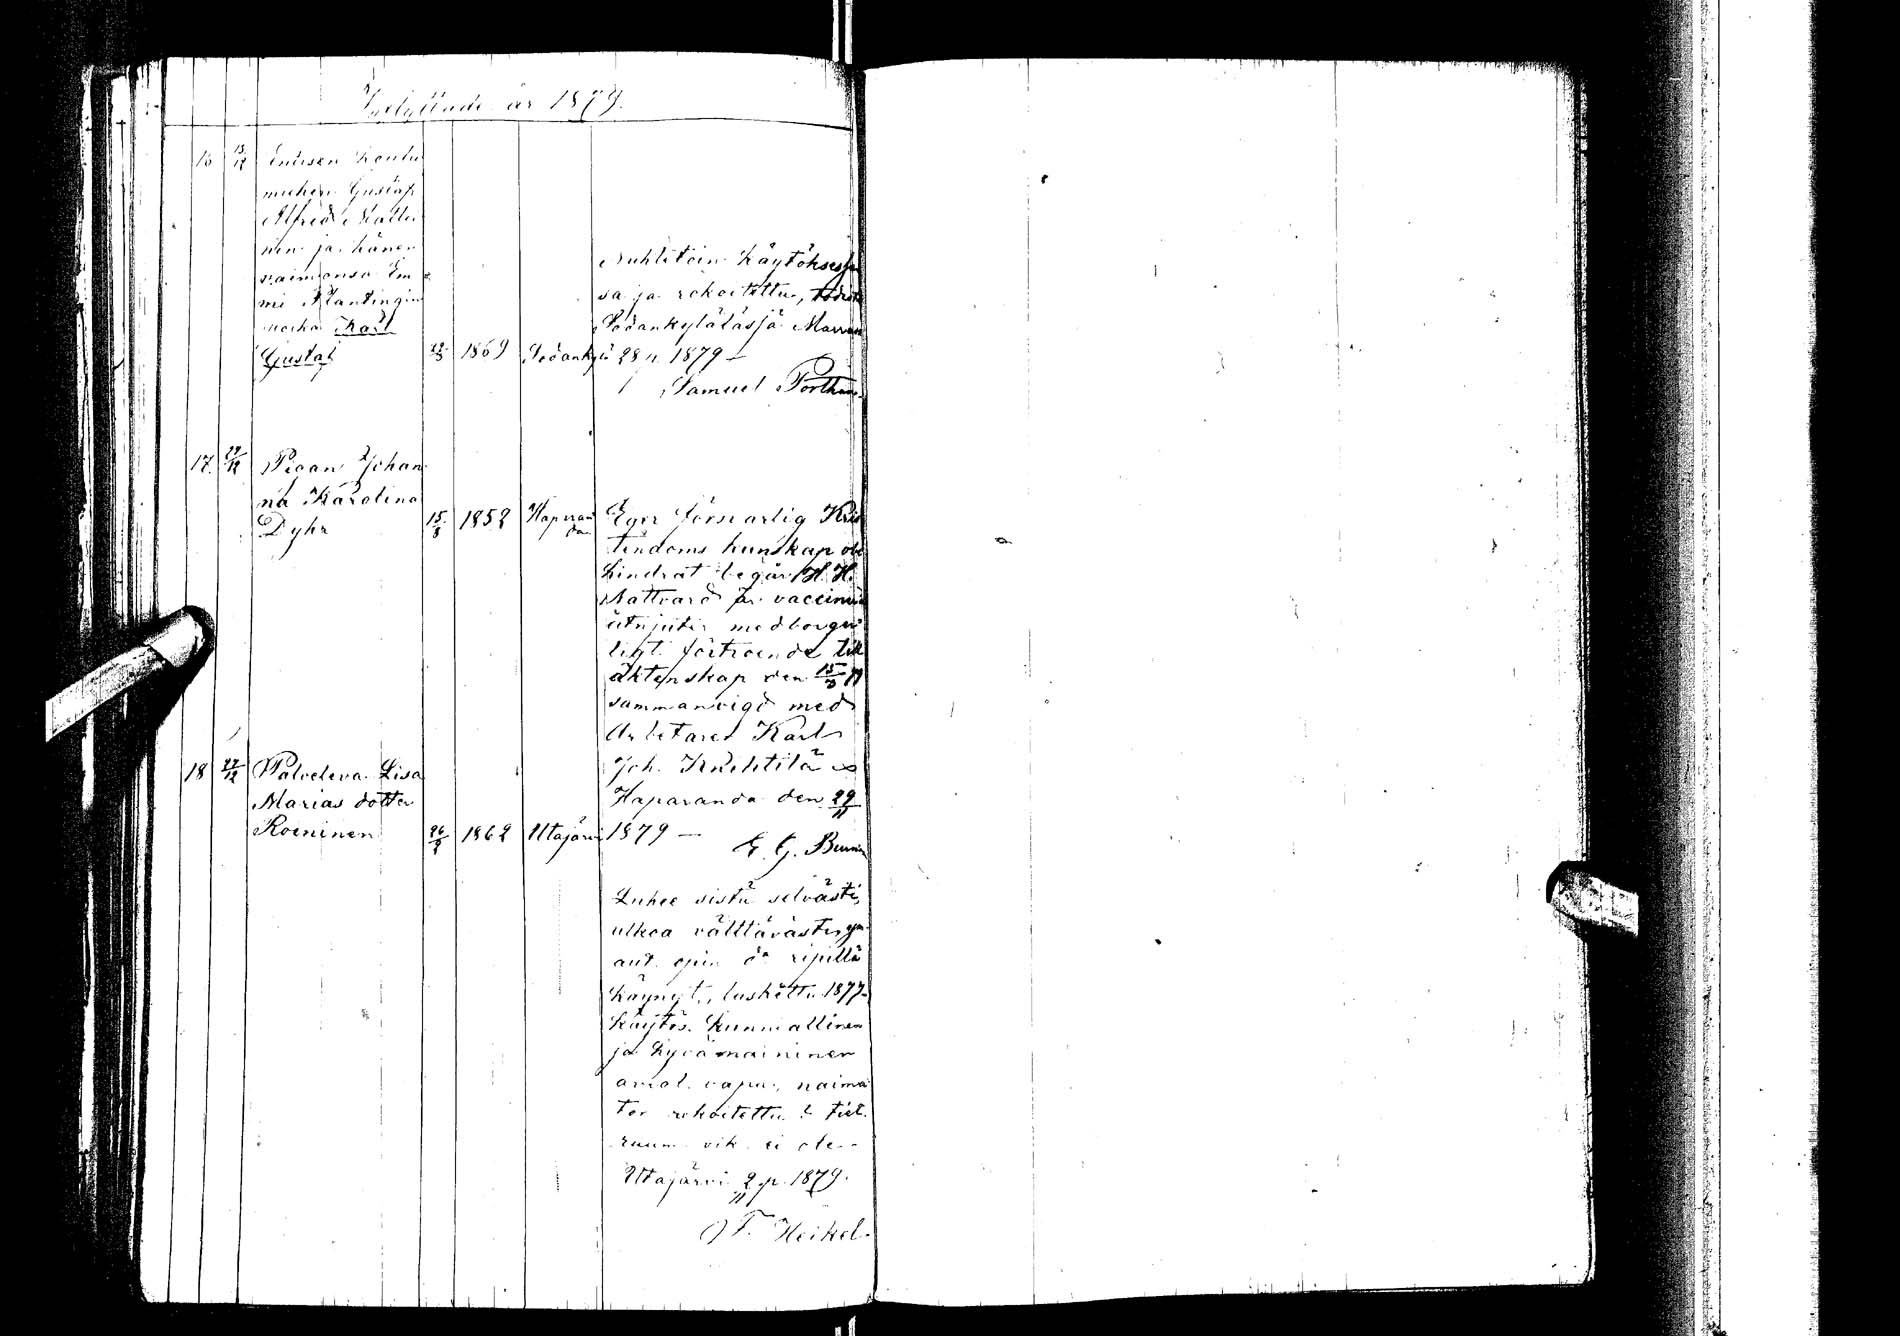 Inflyttade år 1879.
16 15/12 Entisen Koulu
miehen Gustaf
Alfred
nen ja hänen
vaimonsa Em
mi Plantingin
Karl
Gustaf 1869 Sodankylä
Nuhtetoin Käytökses
sa ja rokoitettu,
Sodankylässä
28 p. 1879 —
Samuel Porthan
17. 27/12 Pigan Johan
na Karolina
Dyhr 15/8 1852 Haparan
da
Eger försvarlig Kris
tendoms kunskap obe
hindrat begår H. H.
Nattvard är vaccinerad
åtnjuter medborger
ligt förtroende till
äktenskap den 15/3 79
sammanvigd med
Arbetaren Karl
Joh. Knihtilä
Haparanda den 29/11
1879 —
E. G.
18 27/12 Palveleva Lisa
Marias dotter
Roininen 26/2 1862 Utajärvi
Lukee sistä selvästi,
ulkoa välttävästi, ym-
ripillä
käynyt, laskettu 1877-
Käytös kunniallinen
ja hyvämaininen
aviol. vapa, naima
ton rokoitettu
ruum. vik. ei ole-
Utajärvi 2/11 p. 1879.
F. Heikel.